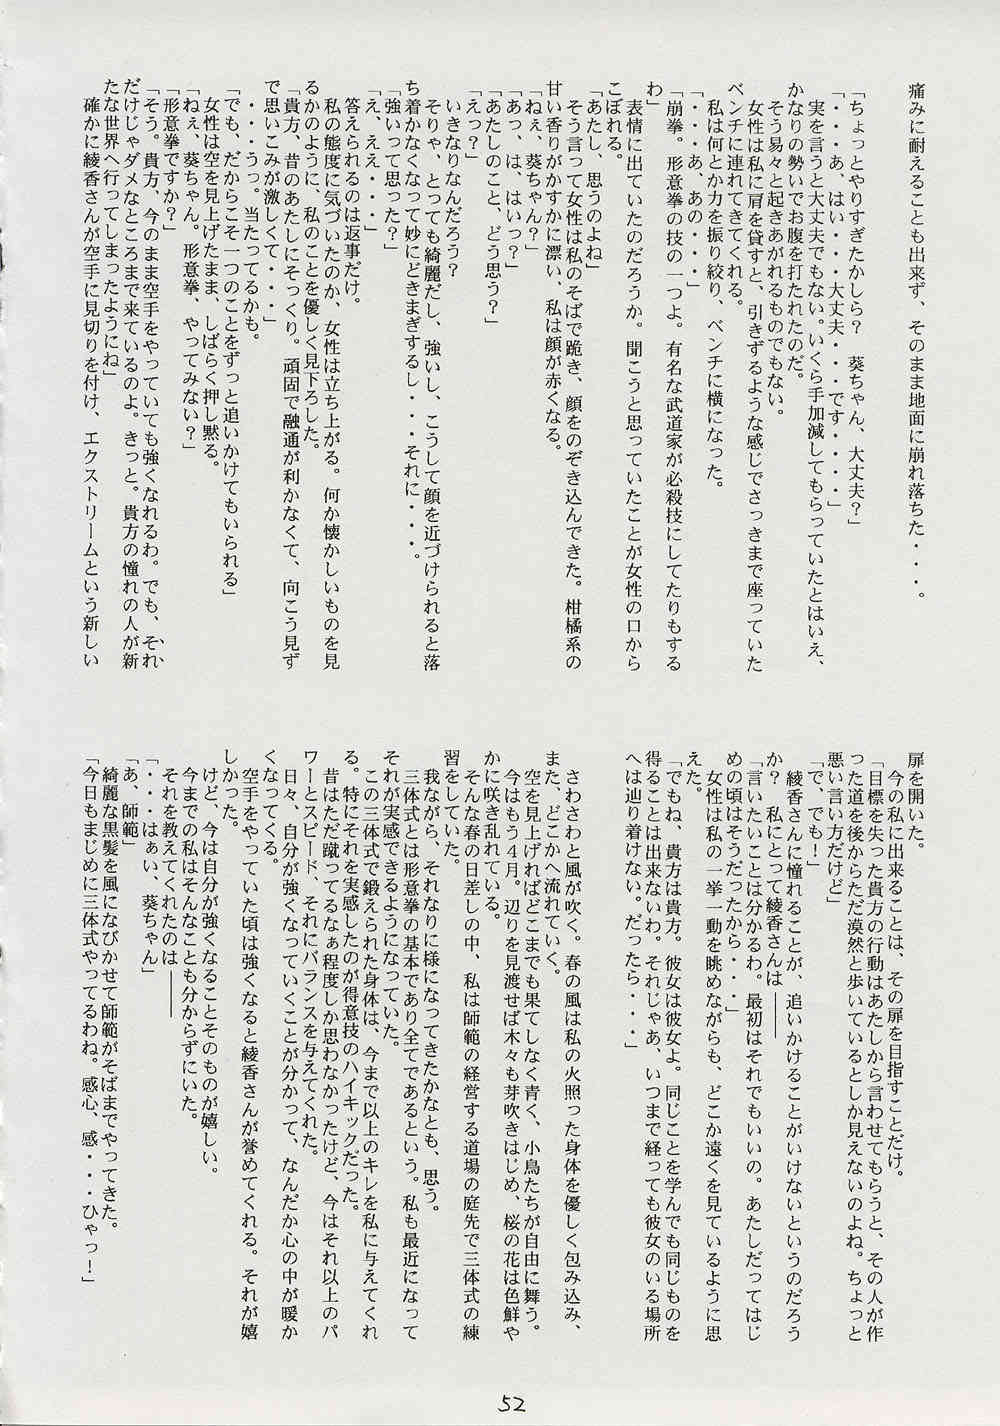 痛みに耐えることも出来ず、そのまま地面に崩れ落ちた・・・。
「ちょっとやりすぎたかしら？　葵ちゃん、大丈夫？」
「・・・あ、はい・・・大丈夫・・・です・・・」
実を言うと大丈夫でもない。いくら手加減してもらっていたとはいえ、
かなりの勢いでお腹を打たれたのだ。
そう易々と起きあがれるものでもない。
女性は私に肩を貸すと、引きずるような感じでさっきまで座っていた
ベンチに連れてきてくれる。
私は何とか力を振り絞り、ベンチに横になった。
「・・・あ、あの・・・」
「崩拳。形意拳の技の一つよ。有名な武道家が必殺技にしてたりもする
わ」
表情に出ていたのだろうか。聞こうと思っていたことが女性の口から
こぼれる。
「あたし、思うのよね」
そう言って女性は私のそばで跪き、顔をのぞき込んできた。柑橘系の
甘い香りがかすかに漂い、私は顔が赤くなる。
「ねぇ、葵ちゃん？」
「あっ、は、はいっ？」
「あたしのこと、どう思う？」
「えっ？」
いきなりなんだろう？
そりゃ、とっても綺麗だし、強いし、こうして顔を近づけられると落
ち着かなくなって妙にどきまぎするし・・・それに・・・。
「強いって思った？」
「え、ええ・・・」
答えられるのは返事だけ。
私の態度に気づいたのか、女性は立ち上がる。何か懐かしいものを見
るかのように、私のことを優しく見下ろした。
「貴方、昔のあたしにそっくり。頑固で融通が利かなくて、向こう見ず
で思いこみが激しくて・・・」
・・・うっ。当たってるかも。
「でも、だからこそ一つのことをずっと追いかけてもいられる」
女性は空を見上げたまま、しばらく押し黙る。
「ねぇ、葵ちゃん。形意拳、やってみない？」
「形意拳ですか？」
「そう。貴方、今のまま空手をやっていても強くなれるわ。でも、それ
だけじゃダメなところまで来ているのよ。きっと。貴方の憧れの人が新
たな世界へ行ってしまったようにね」
確かに綾香さんが空手に見切りを付け、エクストリームという新しい
扉を開いた。
今の私に出来ることは、その扉を目指すことだけ。
「目標を失った貴方の行動はあたしから言わせてもらうと、その人が作
った道を後からただ漠然と歩いているとしか見えないのよね。ちょっと
悪い言い方だけど」
「で、でも！」
綾香さんに憧れることが、追いかけることがいけないというのだろう
か？　私にとって綾香さんは――
「言いたいことは分かるわ。最初はそれでもいいの。あたしだってはじ
めの頃はそうだったから・・・」
女性は私の一挙一動を眺めながらも、どこか遠くを見ているように思
えた。
「でもね、貴方は貴方。彼女は彼女よ。同じことを学んでも同じものを
得ることは出来ないわ。それじゃあ、いつまで経っても彼女のいる場所
へは辿り着けない。だったら・・・」
さわさわと風が吹く。春の風は私の火照った身体を優しく包み込み、
また、どこかへ流れていく。
空を見上げればどこまでも果てしなく青く、小鳥たちが自由に舞う。
今はもう４月。辺りを見渡せば木々も芽吹きはじめ、桜の花は色鮮や
かに咲き乱れている。
そんな春の日差しの中、私は師範の経営する道場の庭先で三体式の練
習をしていた。
我ながら、それなりに様になってきたかなとも、思う。
三体式とは形意拳の基本であり全てであるという。私も最近になって
それが実感できるようになっていた。
この三体式で鍛えられた身体は、今まで以上のキレを私に与えてくれ
る。特にそれを実感したのが得意技のハイキックだった。
昔はただ蹴ってるなぁ程度しか思わなかったけど、今はそれ以上のパ
ワーとスピード、それにバランスを与えてくれた。
日々、自分が強くなっていくことが分かって、なんだか心の中が暖か
くなってくる。
空手をやっていた頃は強くなると綾香さんが誉めてくれる。それが嬉
しかった。
けど、今は自分が強くなることそのものが嬉しい。
今までの私はそんなことも分からずにいた。
それを教えてくれたのは――
「・・・はぁい、葵ちゃん」
「あ、師範」
綺麗な黒髪を風になびかせて師範がそばまでやってきた。
「今日もまじめに三体式やってるわね。感心、感・・・ひゃっ！」
52